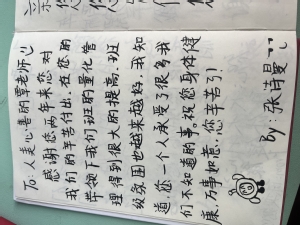 To: 人美心善的覃老师
感谢您两年来您对
我们的辛苦付出,在您的
带领下我们班的量化管
理得到很大的提高,班
级氛围也越来越好,我知
道您一个人承受了很多我
们不知道的事,祝您身体健
康万事如意,您辛苦了!
By: 张诗曼